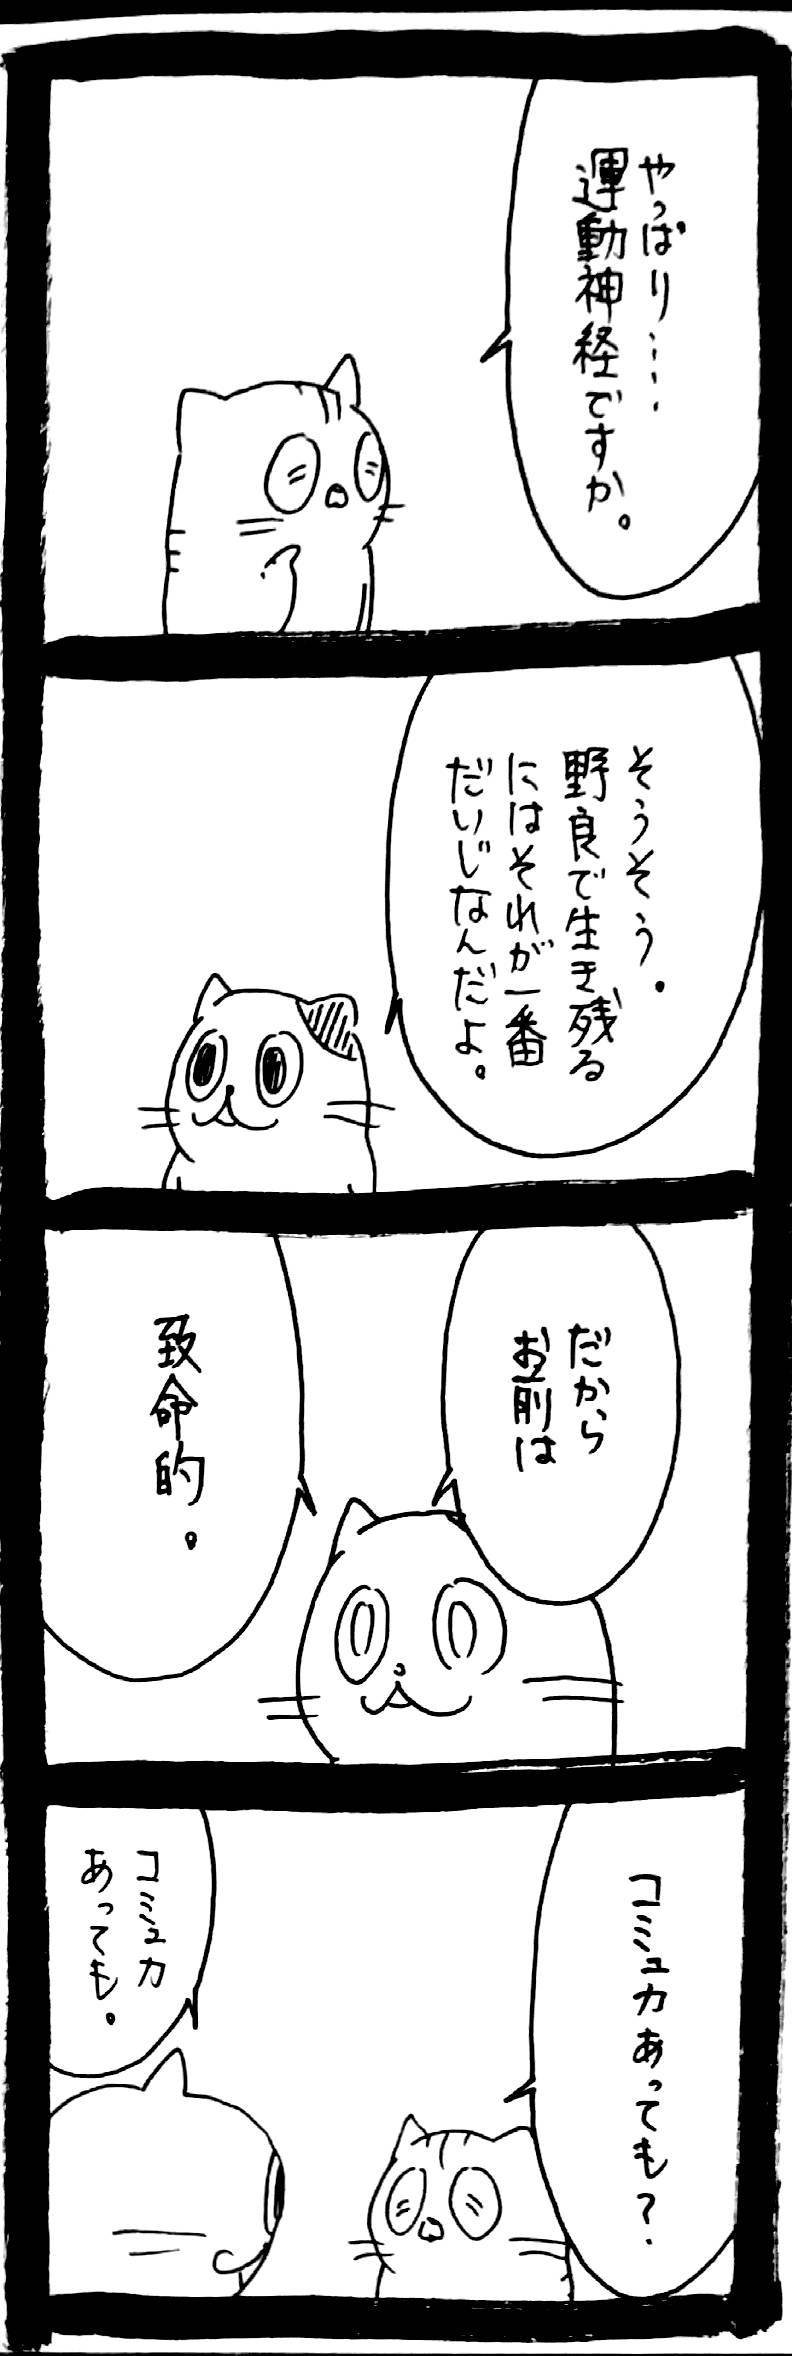 やっぱり…‥
運動神経ですか。
そうそう。
野良で生き残る
にはそれが一番
だいじなんだよ。
だから
お前は
致命的。
コミュ力あっても？
コミュ力
あっても。